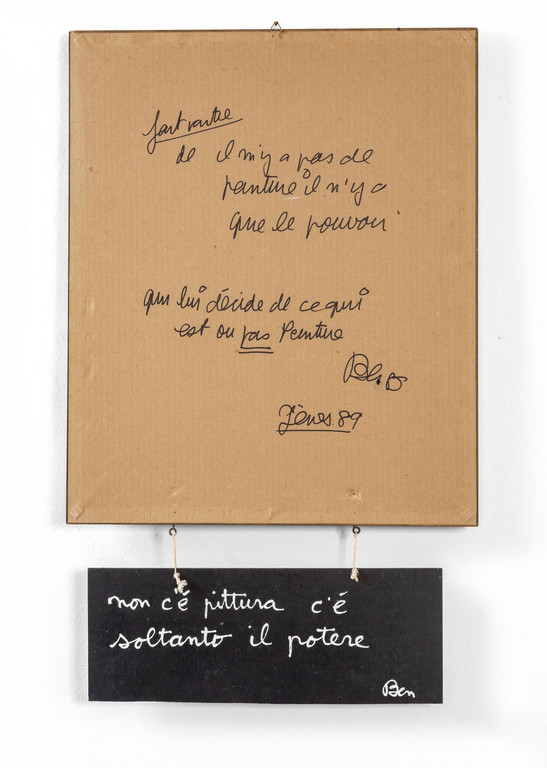 fait partie
de il n'y a pas de
peinture il n'y a
que le pouvoir
qui lui décide de ce qui
est ou pas Peinture
Ben
Gênes 89
non c'é pittura c'é
soltanto il potere
Ben